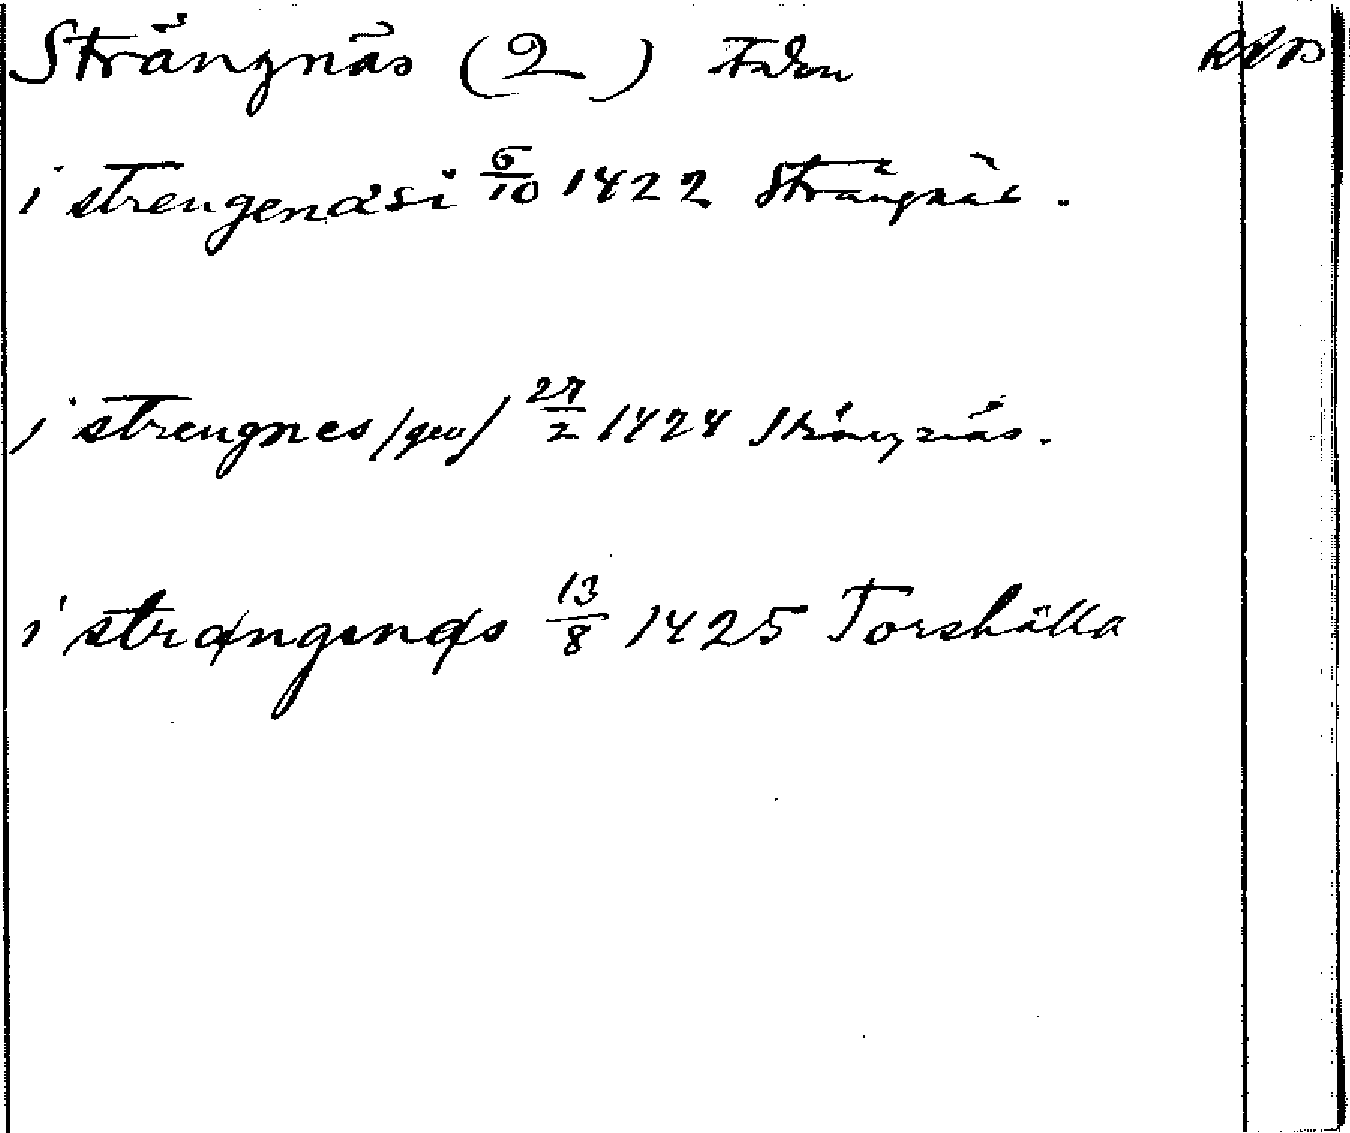 Strängnäs (2)
i strengenæsi 6/10 1422 Strängnäs.
i strengnes /gen/ 27/2 1424 Strängnäs.
i strængenæs 13/8 1425 Torshälla